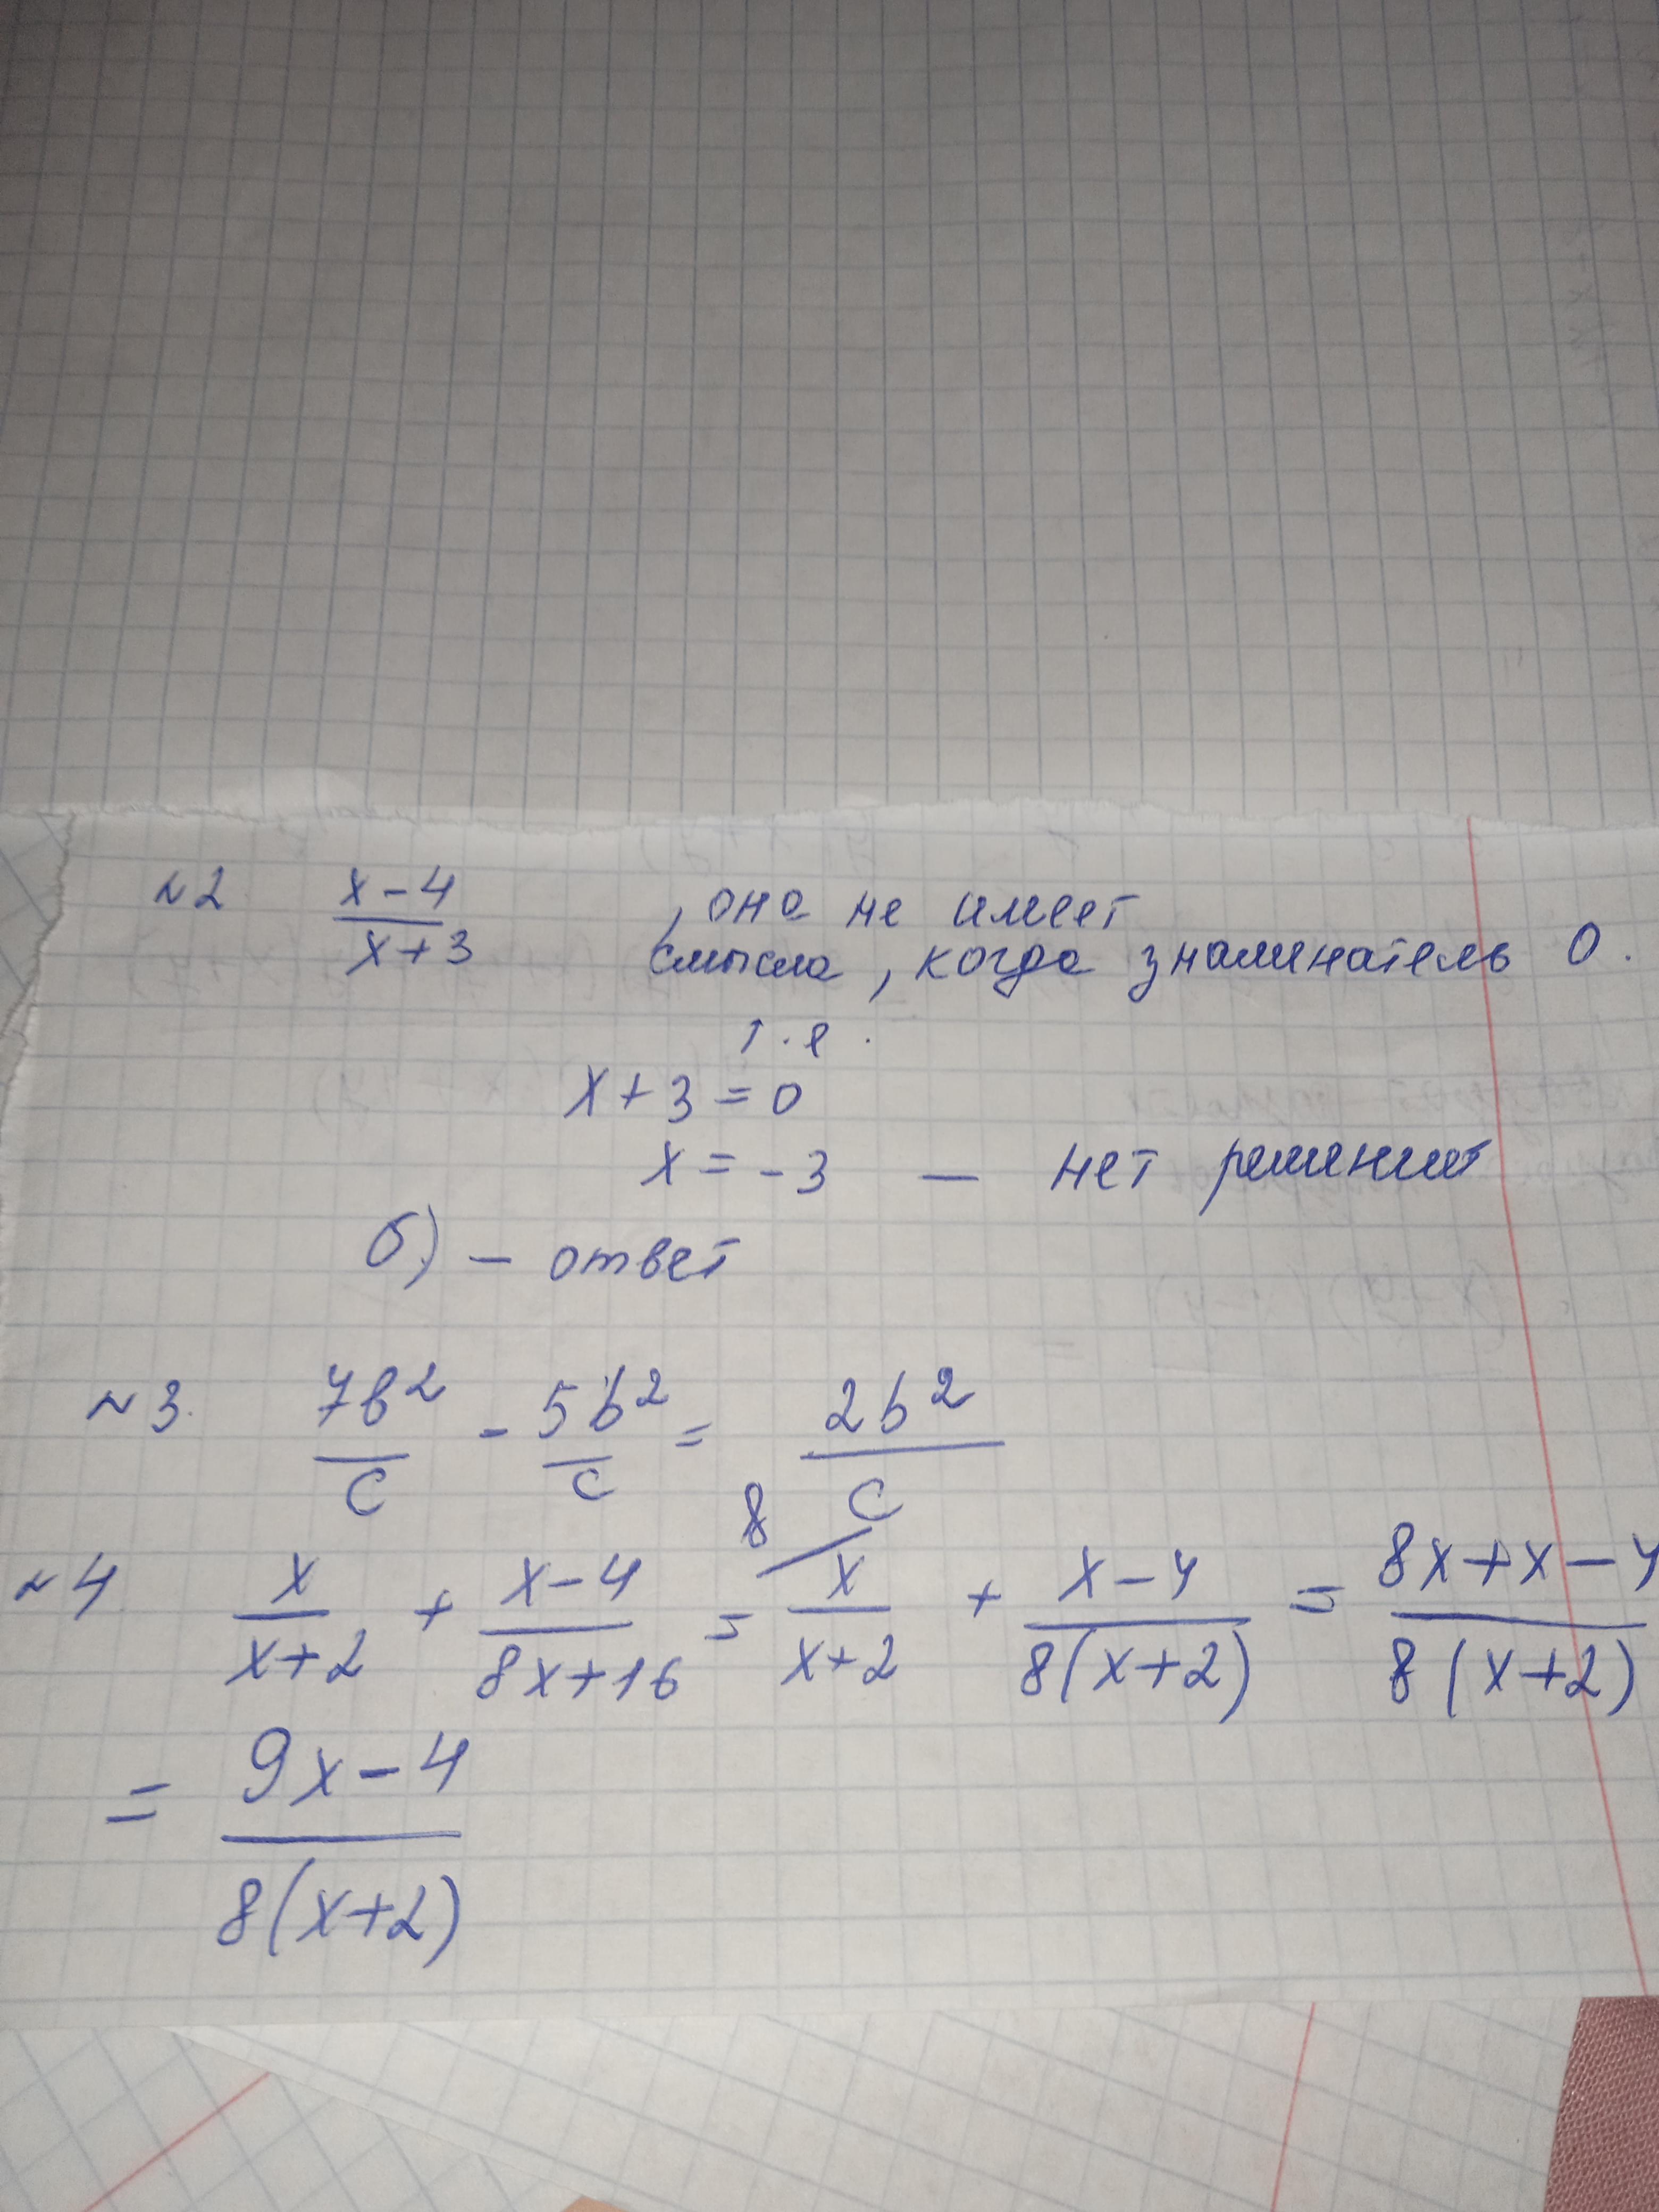 №2 x-4/x+3 , она не имеет
смысла, когда знаминатель 0.
т.е.
x+3=0
x=-3 — нет решения
б) — ответ
№3. 7b²/c - 5b²/c = 2b²/c
№4 x/x+2 + x-4/8x+16 = 8/ x/x+2 + x-4/8(x+2) = 8x+x-4/8(x+2)
= 9x-4/8(x+2)